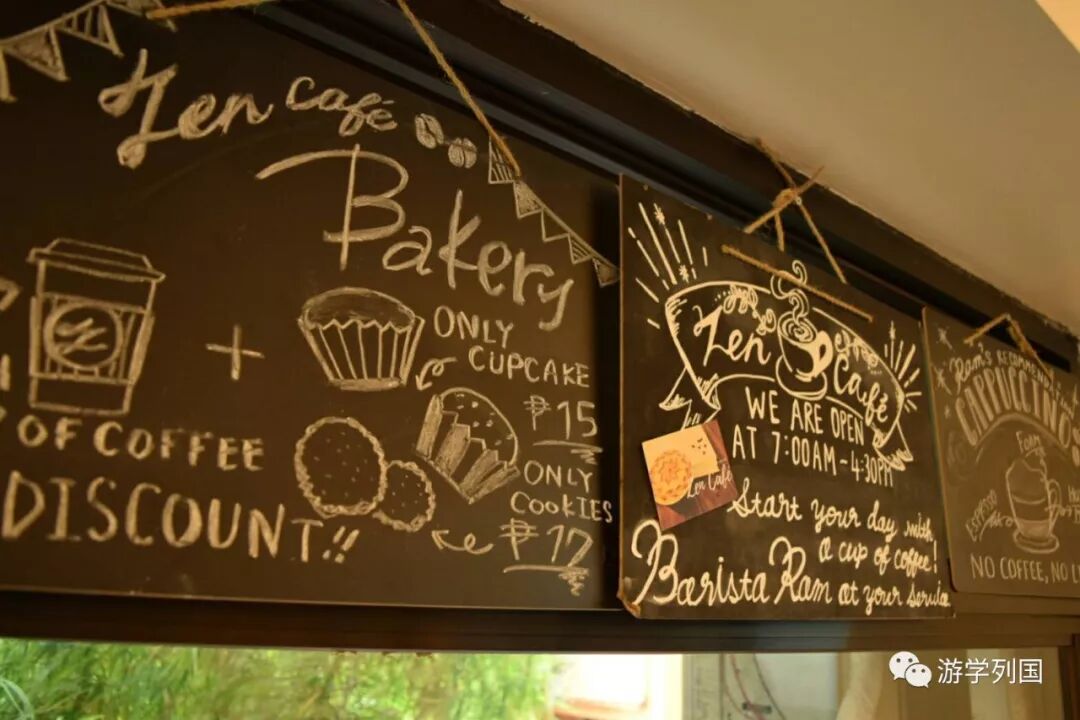 Zen café
Bakery
ONLY
CUPCAKE
₱15
ONLY
COOKIES
₱17
+
OF COFFEE
DISCOUNT!!
Zen Café
WE ARE OPEN
AT 7:00AM-4:30PM
Zen Café
Start your day with
a cup of coffee!
Barista Ram at your service
Ram's
CAPPUCCINO
Foam
ESPRESSO
NO COFFEE, NO
游学列国